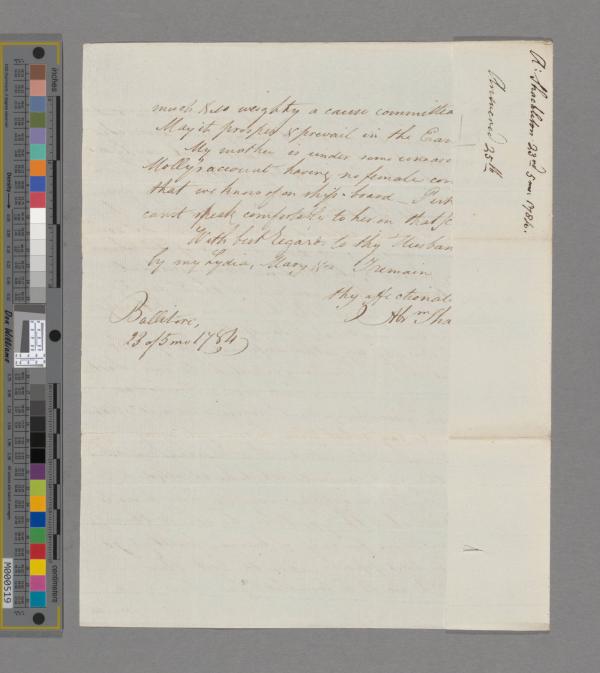 much & so weighty a cause committed
May it prosper & prevail in the Ear
My mother is under some uneasi
Molly's account having no female com
that we know of on ship-board _ Perh
canst speak comfortable to her on that
With best Regards to thy Husban
by my Lydia, Mary &c I remain
thy affectionat
Abr^m Sha
Ballitore.
23 of 5 mo 1784
A: Shackleton 23^rd 5 mo. 1784.
Answered 25^th
inches
centimetres
Density
Don Williams
M000519